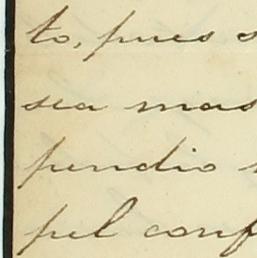 to, pues
sea mas
pendio
pel conf